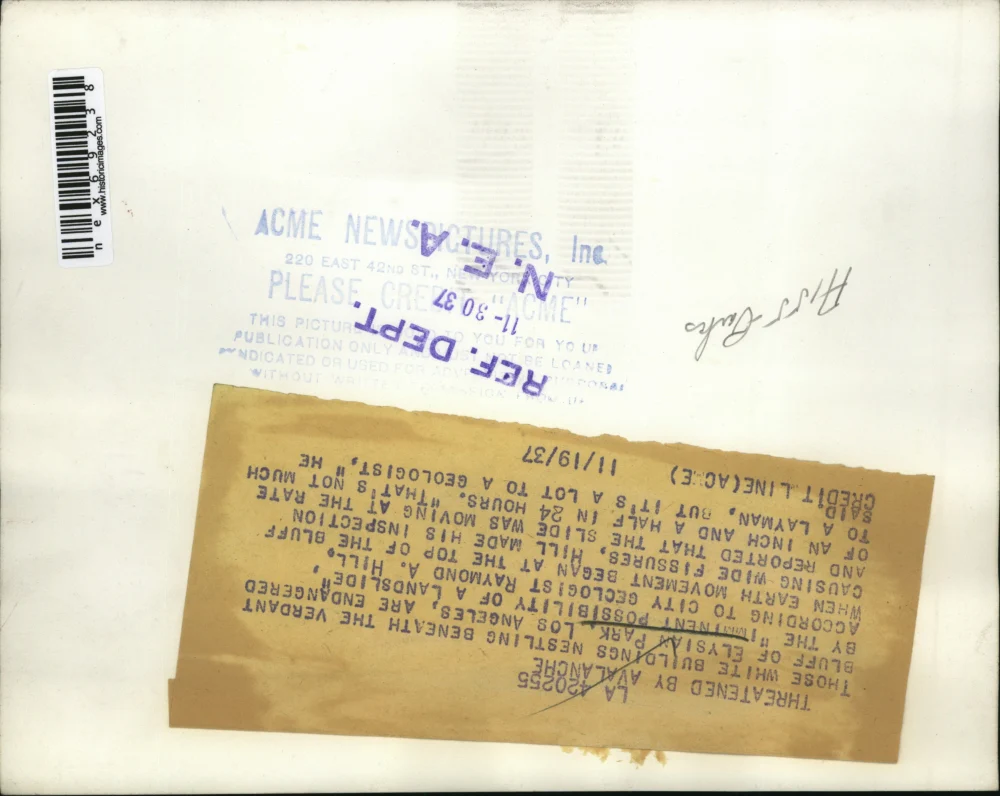 nex69238
www.historicimages.com
ACME NEWSPICTURES, Inc.
220 EAST 42ND ST., NEW YORK CITY
PLEASE CREDIT "ACME"
THIS PICTURE TO YOU FOR YOUR
PUBLICATION ONLY AND MUST NOT BE LOANED
SYNDICATED OR USED FOR
WITHOUT WRITTEN PERMISSION
REF. DEPT.
11-30 37
N.E.A.
LA 420255
THREATENED BY AVALANCHE
THOSE WHITE BUILDINGS NESTLING BENEATH THE VERDANT
BLUFF OF ELYSIAN PARK, LOS ANGELES, ARE ENDANGERED
BY THE "IMMINENT POSSIBILITY OF A LANDSLIDE",
ACCORDING TO CITY GEOLOGIST RAYMOND A. HILL,
WHEN EARTH MOVEMENT BEGAN AT THE TOP OF THE BLUFF
CAUSING WIDE FISSURES, HILL MADE HIS INSPECTION
AND REPORTED THAT THE SLIDE WAS MOVING AT THE RATE
OF AN INCH AND A HALF IN 24 HOURS. "THAT'S NOT MUCH
TO A LAYMAN, BUT IT'S A LOT TO A GEOLOGIST," HE
SAID
CREDIT LINE(ACME) 11/19/37